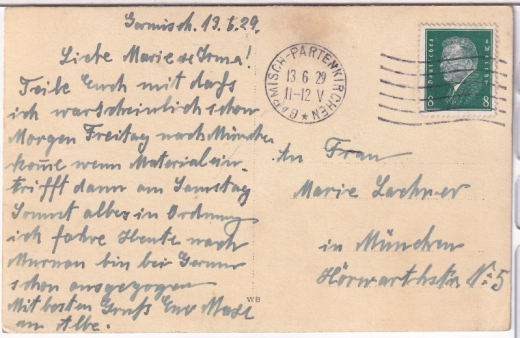 Garmisch. 13.6.29.
Liebe Marie u Irma!
Teile Euch mit dass
ich warscheinlich schon
Morgen Freitag nach München
kom̄e wenn Material ein-
trifft dann am Samstag
Sonnst alles in Ordnung
ich fahre Heute nach
Murnau bin bei
schon ausgezogen
Mit besten Gruß Euer
an Alle.
GARMISCH-PARTENKIRCHEN
13 6 29
11-12 V
8 8
An Frau
Marie Lachner
in München
Hörwarthstr No. 5
WB